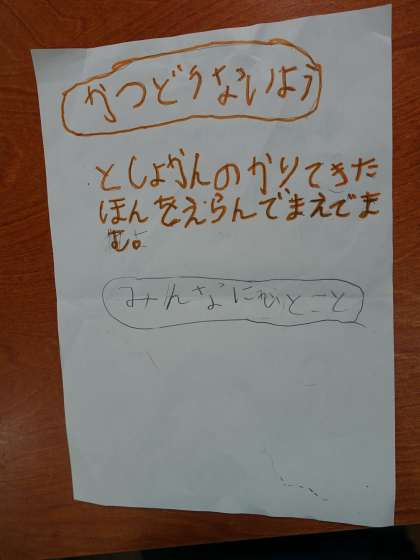 かつどうないよう
としょかんのかりてきた
ほんをえらんでまえでま
む。
みんなにひとこと